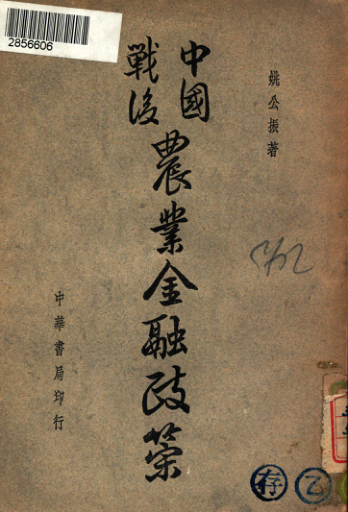 2856606
姚公振著
中國
戰後
農業金融政策
中華書局印行
存
乙